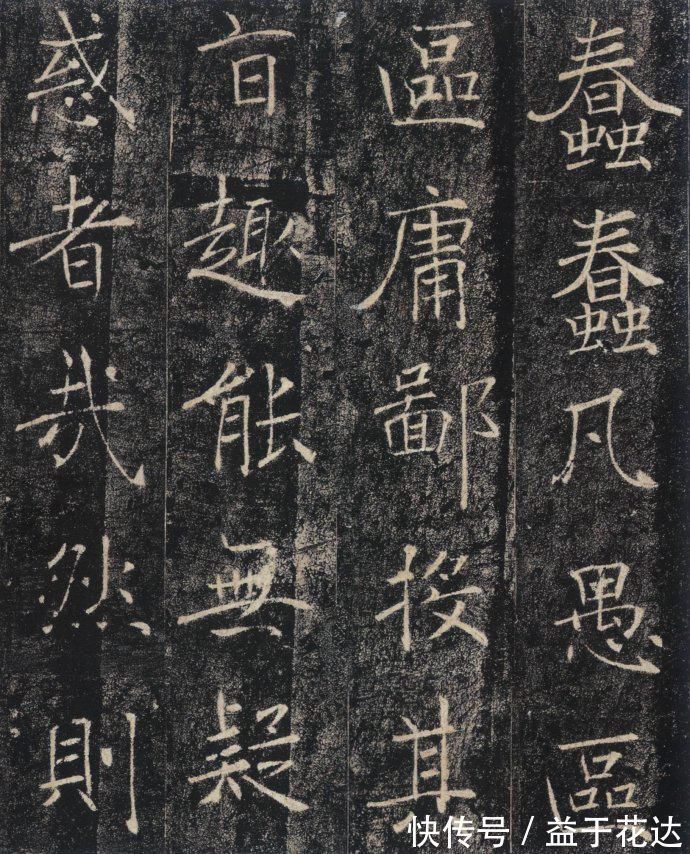 蠢蠢凡愚區
區庸鄙投其
旨趣能無疑
惑者哉然則
快传号 / 益于花达